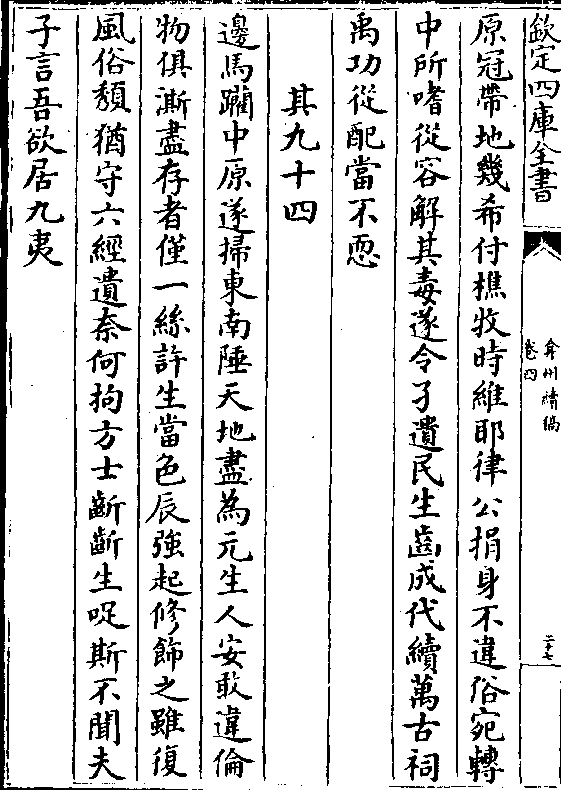 欽定四庫全書
弇州續稿
卷四
二十七
原冠帶地幾希付樵牧時維耶律公捐身不違俗宛轉
中所嗜從容解其毒遂令孑遺民生齒成代續萬古祠
禹功從配當不恧
其九十四
邊馬躪中原遂掃東南陲天地盡為元生人安敢違倫
物俱澌盡存者僅一絲許生當色辰強起修飾之雖復
風俗頹猶守六經遺奈何拘方士齗齗生呢斯不聞夫
子言吾欲居九夷